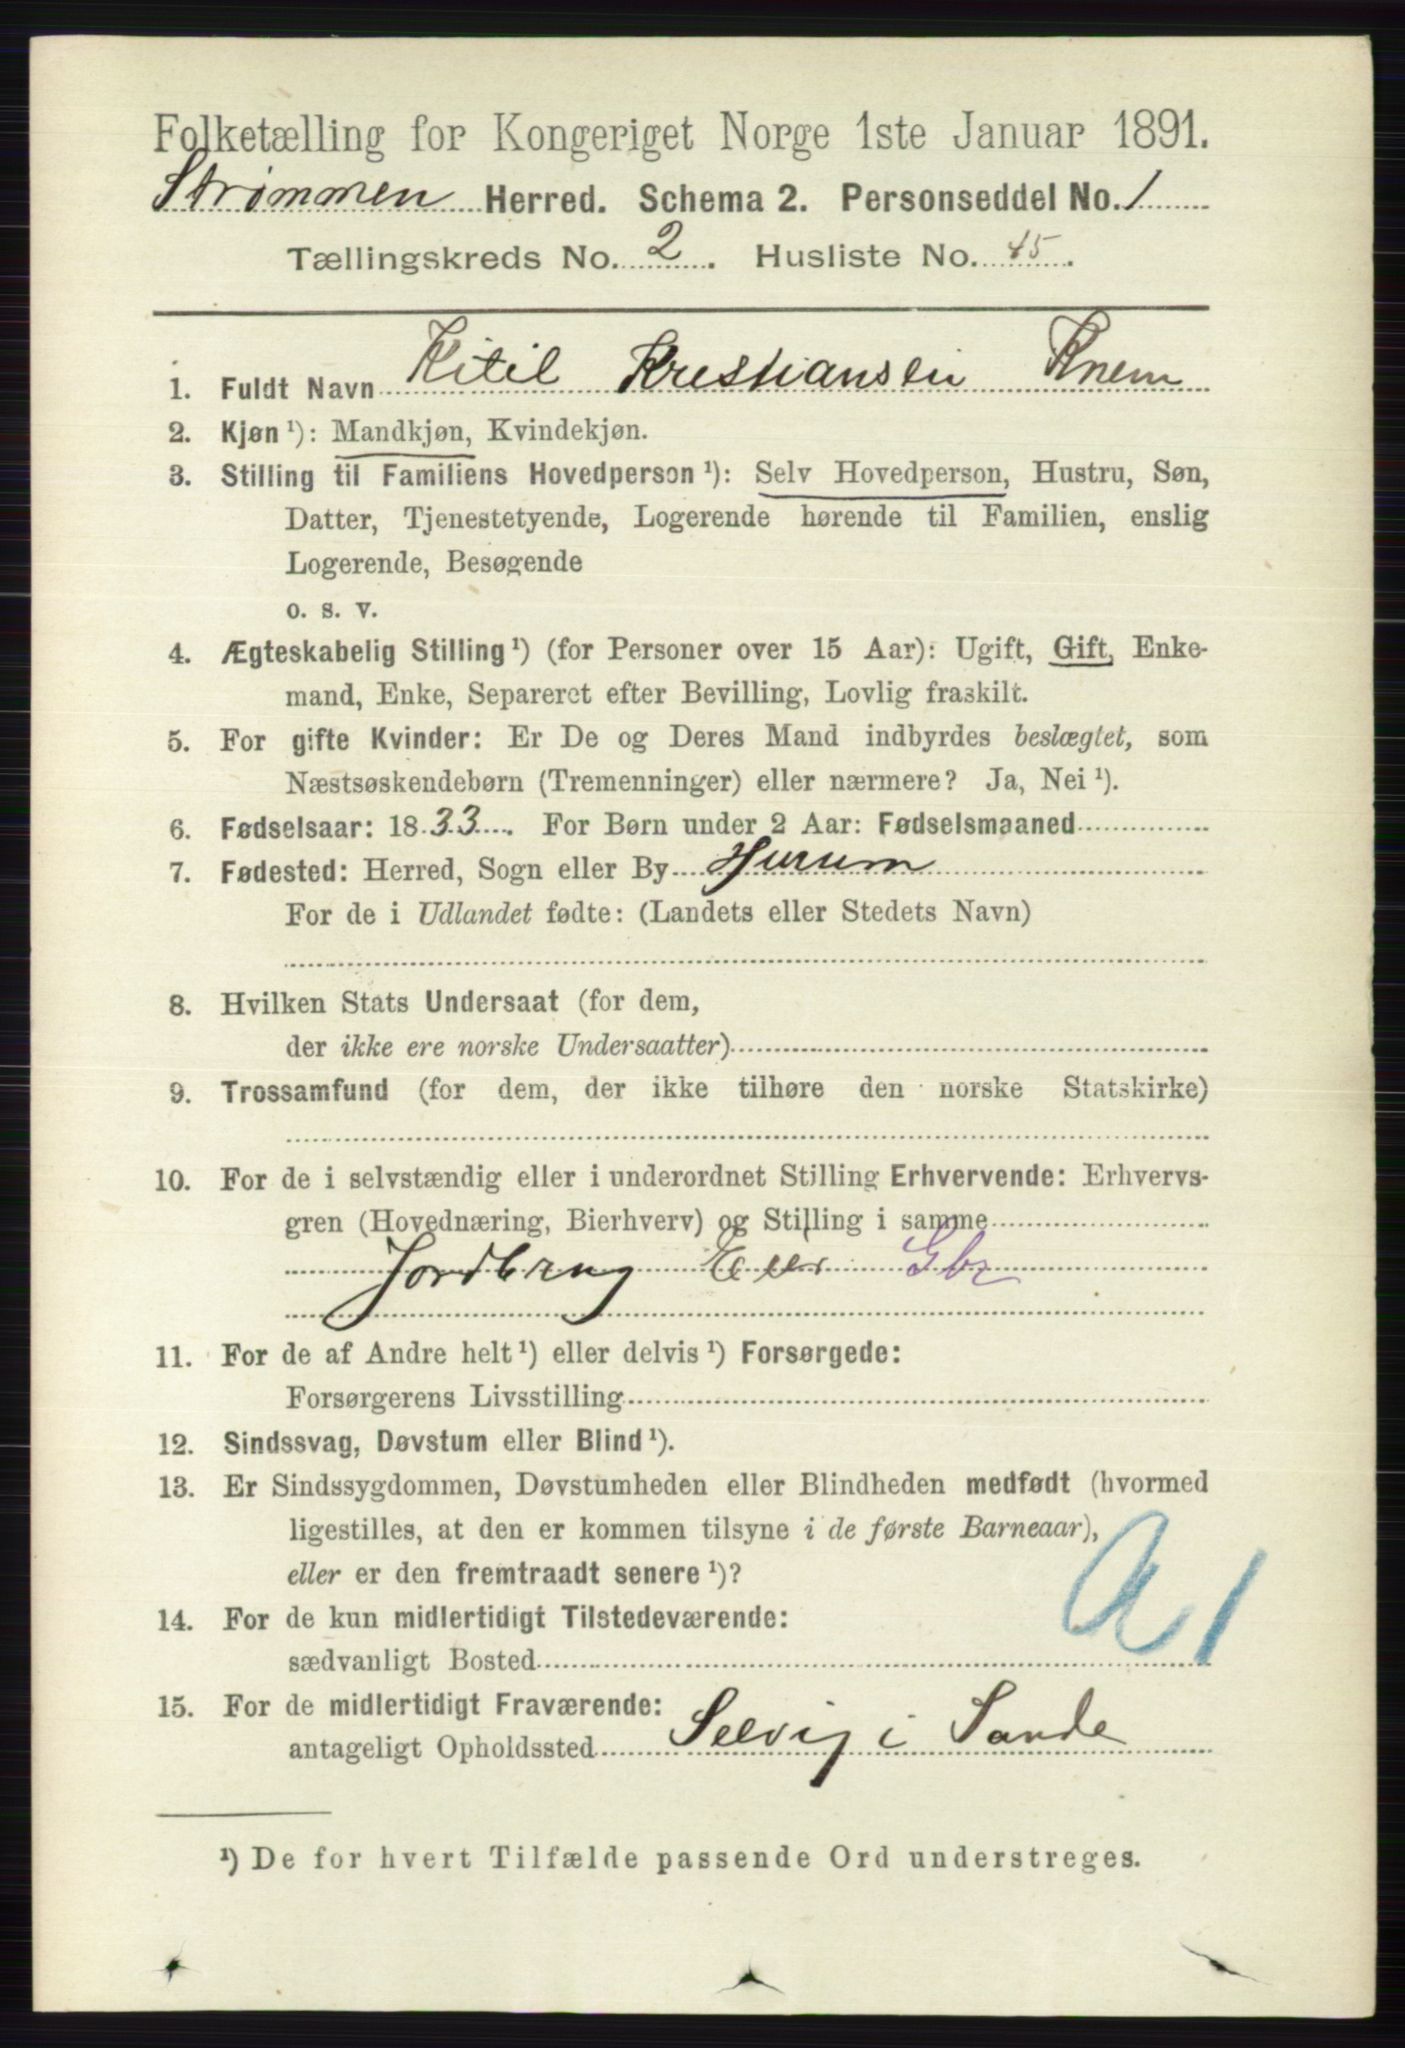 Folketælling for Kongeriget Norge 1ste Januar 1891.
Strømmen Herred. Schema 2. Personseddel No. 1
Tællingskreds No. 2. Husliste No. 45.
1. Fuldt Navn Kitil Kristiansen Knem
2. Kjøn ¹): Mandkjøn, Kvindekjøn.
3. Stilling til Familiens Hovedperson ¹): Selv Hovedperson, Hustru, Søn,
Datter, Tjenestetyende, Logerende hørende til Familien, enslig
Logerende, Besøgende
o. s. v.
4. Ægteskabelig Stilling ¹) (for Personer over 15 Aar): Ugift, Gift, Enke-
mand, Enke, Separeret efter Bevilling, Lovlig fraskilt.
5. For gifte Kvinder: Er De og Deres Mand indbyrdes beslægtet, som
Næstsøskendebørn (Tremenninger) eller nærmere? Ja, Nei ¹).
6. Fødselsaar: 1833. For Børn under 2 Aar: Fødselsmaaned
7. Fødested: Herred, Sogn eller By Hurum
For de i Udlandet fødte: (Landets eller Stedets Navn)
8. Hvilken Stats Undersaat (for dem,
der ikke ere norske Undersaatter)
9. Trossamfund (for dem, der ikke tilhøre den norske Statskirke)
10. For de i selvstændig eller i underordnet Stilling Erhvervende: Erhvervs-
gren (Hovednæring, Bierhverv) og Stilling i samme
Jordbrug Eier Gbr
11. For de af Andre helt ¹) eller delvis ¹) Forsørgede:
Forsørgerens Livsstilling
12. Sindssvag, Døvstum eller Blind ¹).
13. Er Sindssygdommen, Døvstumheden eller Blindheden medfødt (hvormed
ligestilles, at den er kommen tilsyne i de første Barneaar),
eller er den fremtraadt senere ¹)?
A 1
14. For de kun midlertidigt Tilstedeværende:
sædvanligt Bosted
15. For de midlertidigt Fraværende:
antageligt Opholdssted Selvig i Sande
¹) De for hvert Tilfælde passende Ord understreges.